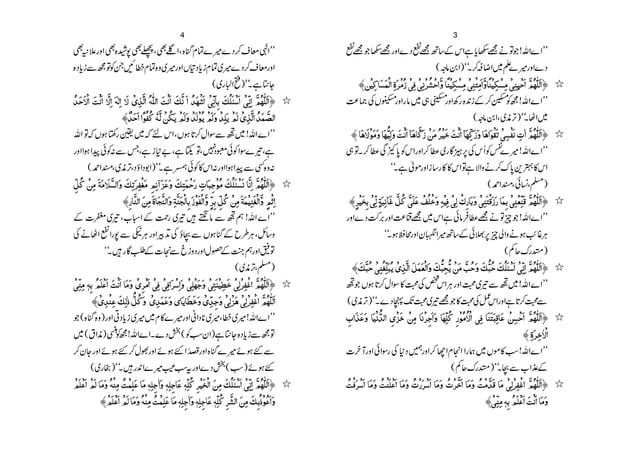 3
''اے اللہ! جو تو نے مجھے سکھایا ہے اس کے ساتھ مجھے نفع دے اور مجھے سکھا جو مجھے نفع
دے اور میرے علم میں اضافہ کر۔'' (ابن ماجہ)
☆ ﴿اَللّٰهُمَّ اَحْيِنِىْ مِسْكِيْنًا وَّاَمِتْنِىْ مِسْكِيْنًا وَّاحْشُرْنِىْ فِىْ زُمْرَةِ الْمَسَاكِيْنَ﴾
''اے اللہ! مجھ کو مسکین کرکے زندہ رکھ اور مسکینی ہی میں مار اور مسکینوں کی جماعت
میں اٹھا۔'' (ترمذی، ابن ماجہ)
☆ ﴿اَللّٰهُمَّ اٰتِ نَفْسِىْ تَقْوٰهَا وَزَكِّهَا اَنْتَ خَيْرُ مَنْ زَكَّاهَا اَنْتَ وَلِيُّهَا وَمَوْلَاهَا﴾
''اے اللہ! میرے نفس کو اس کی پرہیزگاری عطا کر اور اس کو پاکیزگی عطا کر۔ تو ہی
اس کا بہترین پاک کرنے والا ہے تو اس کا کارساز اور مولیٰ ہے۔''
(مسلم، نسائی، مسند احمد)
☆ ﴿اَللّٰهُمَّ قَنِّعْنِىْ بِمَا رَزَقْتَنِىْ وَبَارِكْ لِىْ فِيْهِ وَخْلُفْ عَلٰى كُلِّ غَائِبَةٍ لِّىْ بِخَيْرٍ﴾
''اے اللہ! جو چیز تو نے مجھے عطا فرمائی ہے اس میں مجھے قناعت اور برکت دے اور
ہر غائب ہونے والی چیز پر بھلائی کے ساتھ میرا نگہبان اور محافظ ہو۔''
(مستدرک حاکم)
☆ ﴿اَللّٰهُمَّ اِنِّىْ اَسْئَلُكَ حُبَّكَ وَحُبَّ مَنْ يُّحِبُّكَ وَالْعَمَلَ الَّذِىْ يُبَلِّغُنِىْ حُبَّكَ﴾
''اے اللہ! میں تجھ سے تیری محبت اور ہر اس شخص کی محبت کا سوال کرتا ہوں جو تجھ
سے محبت کرتا ہے اور اس عمل کی محبت کا جو مجھے تیری محبت تک پہنچا دے۔'' (ترمذی)
☆ ﴿اَللّٰهُمَّ اَحْسِنْ عَاقِبَتَنَا فِى الْاُمُوْرِ كُلِّهَا وَاَجِرْنَا مِنْ خِزْىِ الدُّنْيَا وَعَذَابِ
الْاٰخِرَةِ﴾
''اے اللہ! سب کاموں میں ہمارا انجام اچھا کر اور ہمیں دنیا کی رسوائی اور آخرت
کے عذاب سے بچا۔'' (مستدرک حاکم)
☆ ﴿اَللّٰهُمَّ اغْفِرْلِىْ مَا قَدَّمْتُ وَمَا اَخَّرْتُ وَمَا اَسْرَرْتُ وَمَا اَعْلَنْتُ وَمَا اَسْرَفْتُ
وَمَا اَنْتَ اَعْلَمُ بِهٖ مِنِّىْ﴾
4
''الٰہی معاف کر دے میرے تمام گناہ، اگلے بھی، پچھلے بھی، پوشیدہ بھی اور علانیہ بھی
اور معاف کر دے میری تمام زیادتیاں اور میری وہ تمام خطائیں جن کو تو مجھ سے زیادہ
جانتا ہے۔'' (فتح الباری)
☆ ﴿اَللّٰهُمَّ اِنِّىْ اَسْئَلُكَ بِاَنِّىْ اَشْهَدُ اَنَّكَ اَنْتَ اللّٰهُ الَّذِىْ لَا اِلٰهَ اِلَّا اَنْتَ الْاَحَدُ
الصَّمَدُ الَّذِىْ لَمْ يَلِدْ وَلَمْ يُوْلَدْ وَلَمْ يَكُنْ لَّهٗ كُفُوًا اَحَدٌ﴾
''اے اللہ! میں تجھ سے سوال کرتا ہوں، اس لئے کہ میں یقین رکھتا ہوں کہ تو اللہ
ہے، تیرے سوا کوئی معبود نہیں، تو یکتا ہے، بے نیاز ہے، جس سے نہ کوئی پیدا ہوا اور
نہ وہ کسی سے پیدا ہوا اور نہ اس کا کوئی ہمسر ہے۔'' (ابوداؤد، ترمذی، مسند احمد)
☆ ﴿اَللّٰهُمَّ اِنَّا نَسْئَلُكَ مُوْجِبَاتِ رَحْمَتِكَ وَعَزَائِمَ مَغْفِرَتِكَ وَالسَّلَامَةَ مِنْ كُلِّ
اِثْمٍ وَّالْغَنِيْمَةَ مِنْ كُلِّ بِرٍّ وَّالْفَوْزَ بِالْجَنَّةِ وَالنَّجَاةَ مِنَ النَّارِ﴾
''اے اللہ! ہم تجھ سے مانگتے ہیں تیری رحمت کے اسباب، تیری مغفرت کے
وسائل، ہر طرح کے گناہوں سے بچاؤ کی تدبیر اور ہر نیکی سے پورا نفع اٹھانے کی
توفیق اور ہم جنت کے حصول اور دوزخ سے نجات کے طلب گار ہیں۔''
(مسلم، ترمذی)
☆ ﴿اَللّٰهُمَّ اغْفِرْلِىْ خَطِيْئَتِىْ وَجَهْلِىْ وَاِسْرَافِىْ فِىْ اَمْرِىْ وَمَا اَنْتَ اَعْلَمُ بِهٖ مِنِّىْ
اَللّٰهُمَّ اغْفِرْلِىْ هَزْلِىْ وَجِدِّىْ وَخَطَايَاىَ وَعَمَدِىْ وَكُلُّ ذٰلِكَ عِنْدِىْ﴾
''اے اللہ! میری خطا، میری نادانی اور میرے کام میں میری زیادتی اور (وہ گناہ) جو
تو مجھ سے زیادہ جانتا ہے (ان سب کو) بخش دے۔ اے اللہ! مجھ کو ہنسی (مذاق) میں
سے کئے ہوئے میرے گناہ اور قصداً کئے ہوئے اور بھول کر کئے ہوئے اور جان کر
کئے ہوئے (سب) بخش دے اور یہ سب عیب میرے اندر ہیں۔'' (بخاری)
☆ ﴿اَللّٰهُمَّ اِنِّىْ اَسْئَلُكَ مِنَ الْخَيْرِ كُلِّهٖ عَاجِلِهٖ وَاٰجِلِهٖ مَا عَلِمْتُ مِنْهُ وَمَا لَمْ اَعْلَمْ
وَاَعُوْذُبِكَ مِنَ الشَّرِّ كُلِّهٖ عَاجِلِهٖ وَاٰجِلِهٖ مَا عَلِمْتُ مِنْهُ وَمَا لَمْ اَعْلَمْ﴾